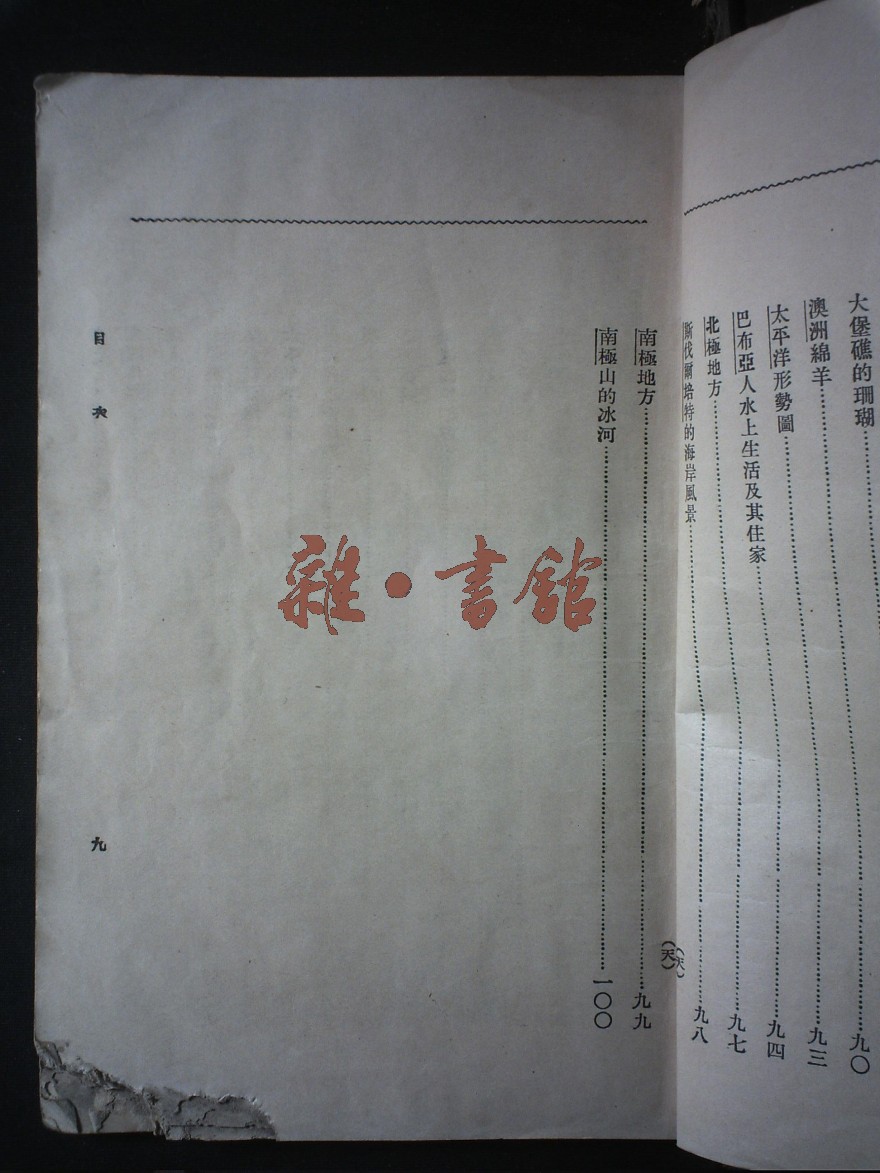 大堡礁的珊瑚……九〇
澳洲綿羊……九三
太平洋形勢圖……九四
巴布亞人水上生活及其住家……九七
北極地方……九八
斯伐爾培特的海岸風景……(天)
南極地方……九九
南極山的冰河……一〇〇
(天)
目次
九
雜·書館